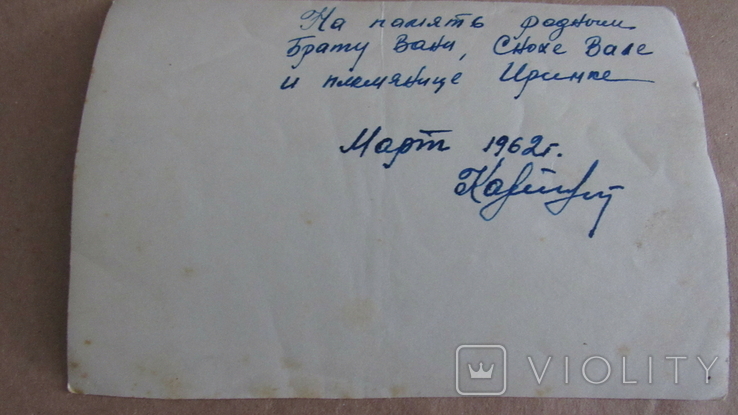 На память родным
Брату Вани, Снохе Вале
и племянице Иринке
Март 1962г.
VIOLITY